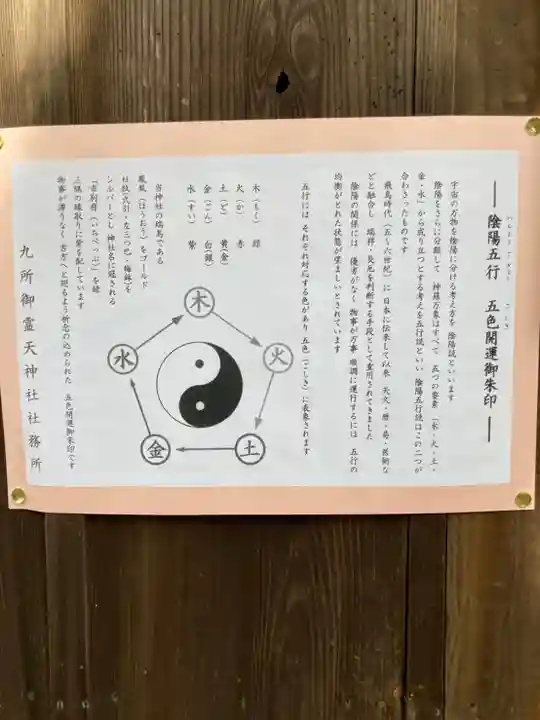 陰陽五行 五色開運御朱印
いんようごぎょう ごしき
宇宙の万物を陰陽に分ける考え方を 陰陽説といいます
陰陽をさらに分類して 神羅万象はすべて 五つの要素(木・火・土・
金・水)から成り立つとする考えを五行説といい 陰陽五行説はこの二つが
合わさったものです
飛鳥時代(五〜六世紀)に 日本に伝来して以来 天文・暦・易・医術な
どと融合し 瑞祥・災厄を判断する手段として重用されてきました
陰陽の関係には 優劣がなく 物事が万事 順調に運行するには 五行の
均衡がとれた状態が望ましいとされています
五行には それぞれ対応する色があり 五色(ごしき)に表象されます
木(もく) 緑
火(か) 赤
土(ど) 黄(金)
金(ごん) 白(銀)
水(すい) 紫
当神社の瑞鳥である
鳳凰(ほうおう)をゴールド
社紋(九引・左三つ巴・梅鉢)を
シルバーとし 神社名に冠される
「吉別符(いちべっぷ)」を緑
三隅の縁取りに紫を配しています
物事が滞りなく 吉方へと廻るよう祈念の込められた 五色開運御朱印です
九所御霊天神社社務所
木
火
土
金
水